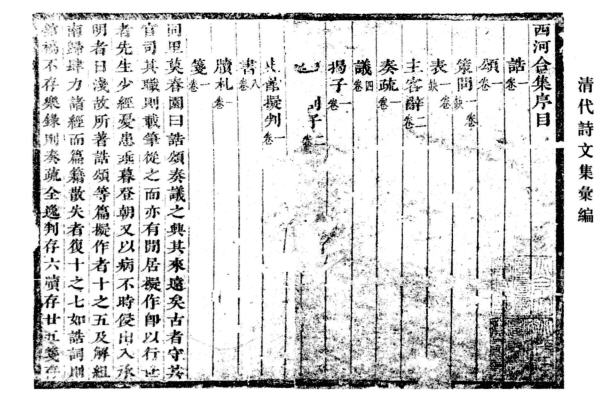 清代詩文集彙編
西河合集序目
誥一卷
頌一卷
策問一卷
表一卷
主客辭二卷
奏疏一卷
議四卷
揭子一卷
劄子二卷
擬判一卷
書八卷
牘札一卷
箋一卷
同里莫春園曰誥頌奏議之興其來遠矣古者守其
官司其職則載筆從之而亦有閒居擬作卽以行世
者先生少經憂患垂暮登朝又以病不時侵出入承
明者日淺故所著誥頌等篇擬作者十之五及解組
南歸肆力諸經而篇籍散失者復十之七如誥詞則
稿不存彔則奏疏全逸判存六牘存廿五箋存